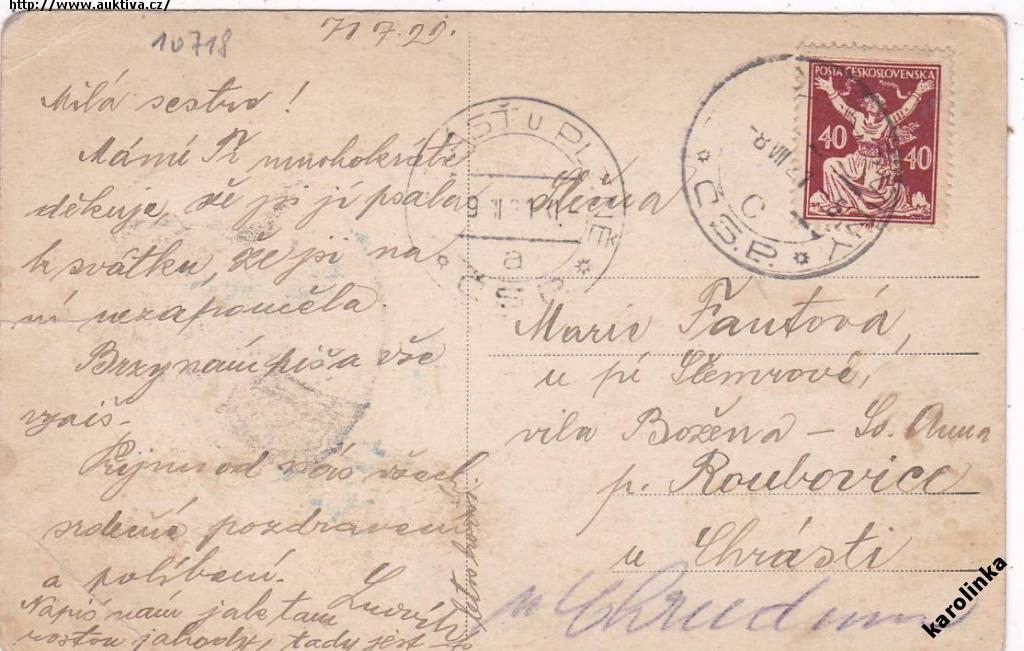 http://www.auktiva.cz/
10718
Milá sestro!
Mámi Tě mnohokráte
děkuje, že jsi jí psala
k svátku, že jsi na
ni nezapoměla
Brzy nám piš a vše
Přijmi od nás všech
srdečné pozdravení
a políbení.
Ludvík
Napiš nám jak tam
rostou jahody, tady jest
POŠTA ČESKOSLOVENSKA
40 40
-8 VIII 21
Č.S.P.
a
Č S P
Slečna
Marie Fantová,
u pí Šlemrové,
vila Božena – Sv. Anna
p. Roubovice
u Chrásti
u Chrudimi
karolinka